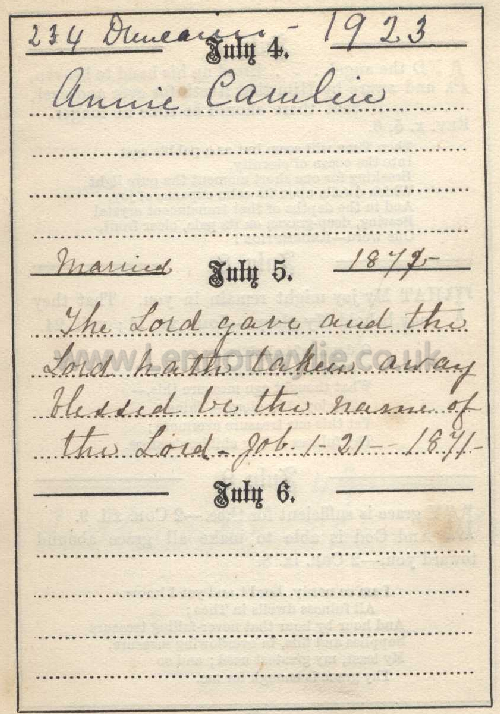 234 1923
July 4.
Annie
Married July 5. 187
The Lord gave and the
Lord hath taken away
blessed be the name of
the Lord - Job. 1 - 21 - 1871 -
www.Lennonwylie.co.uk
July 6.